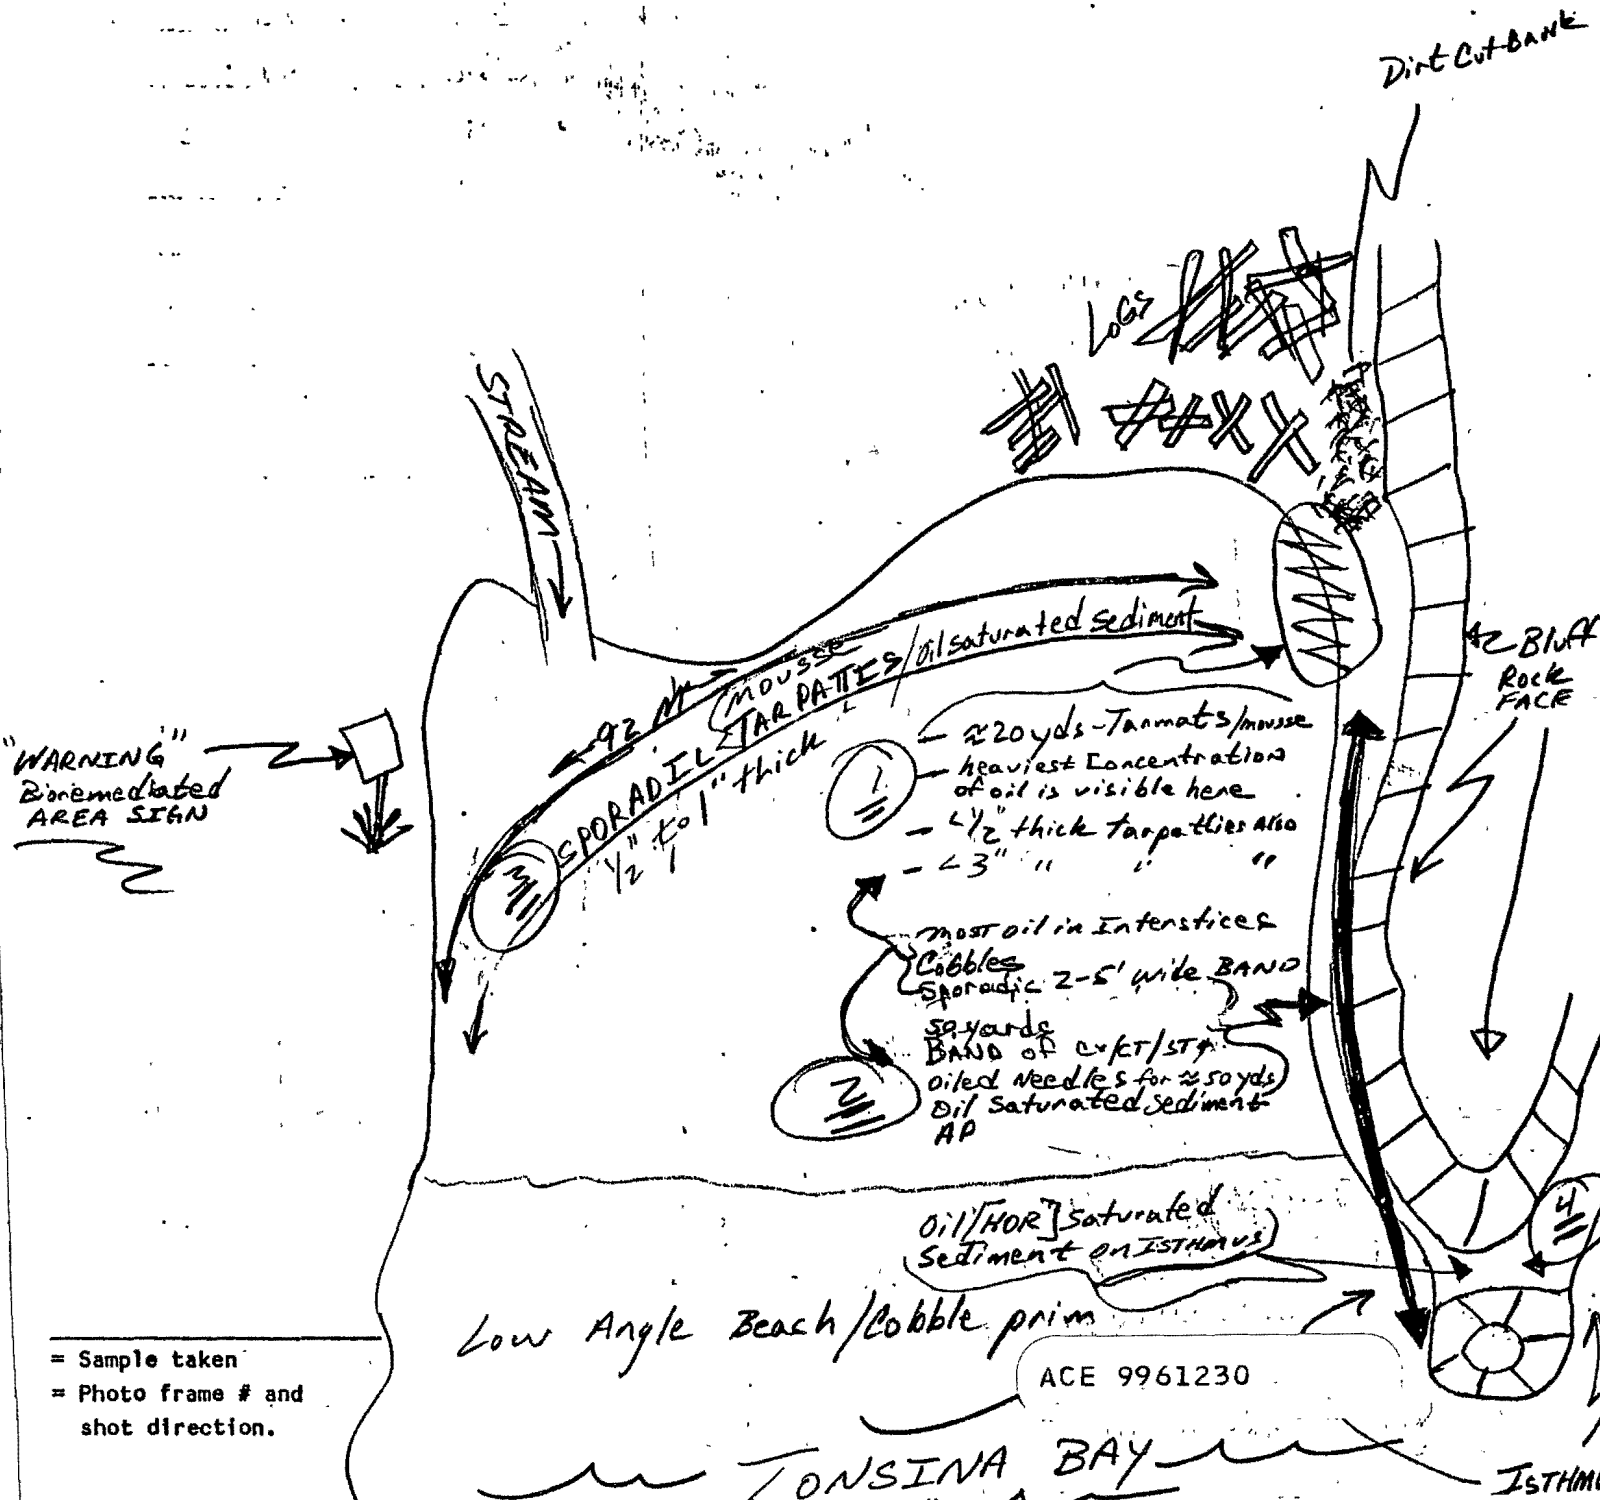 Dirt Cut Bank
LOGS
STREAM
Bluff
Rock
FACE
92 M
(mousse
SPORADIC TAR PATTIES/oil saturated sediment
1/2" to 1" thick
"WARNING"
Bioremediated
AREA SIGN
1
- ≈20yds - Tarmats/mousse
- heaviest Concentration
of oil is visible here
- <1/2" thick tarpatties Also
- <3" " " "
3
most oil in Interstices
Cobbles
Sporadic 2-5' wide BAND
50 yards
BAND of CV/CT/ST
Oiled Needles for ≈50yds
Oil Saturated Sediment
AP
2
Oil/[HOR] Saturated
Sediment on ISTHMUS
4
Low Angle Beach/Cobble prim
= Sample taken
= Photo frame # and
shot direction.
ACE 9961230
TONSINA BAY
ISTHMU